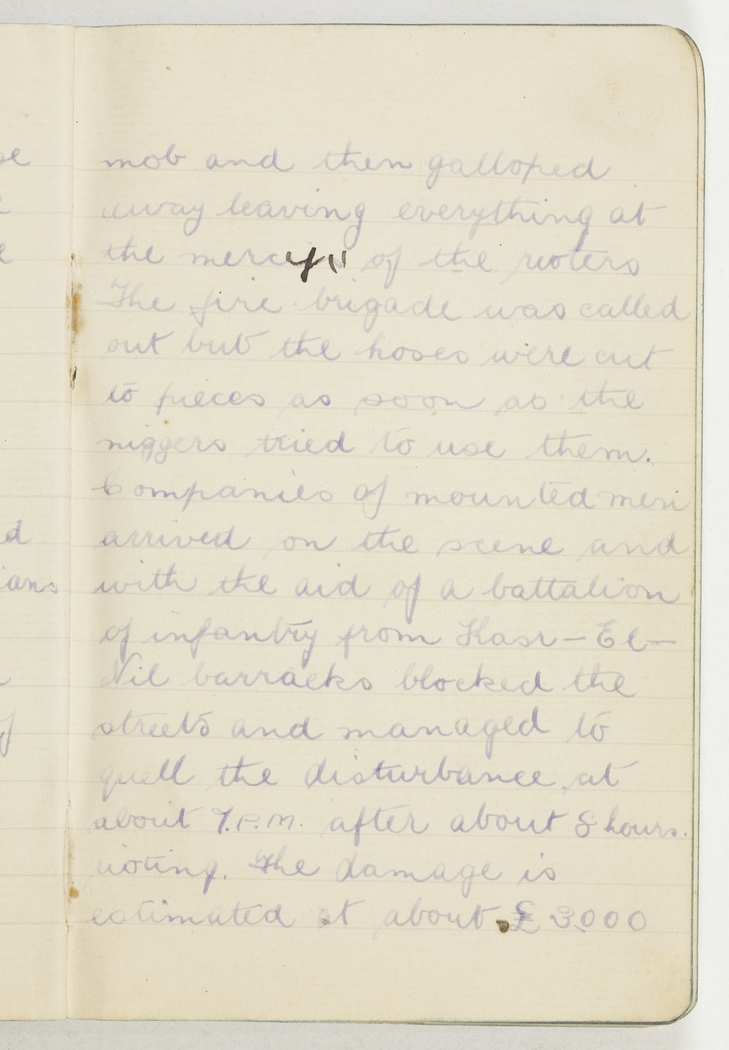 mob and then galloped
away leaving everything at
the mercy of the rioters
The fire brigade was called
out but the hoses were cut
to pieces as soon as the
niggers tried to use them.
Companies of mounted men
arrived on the scene and
with the aid of a battalion
of infantry from Kasr-El-
Nil barracks blocked the
streets and managed to
quell the disturbance at
about 7.P.M. after about 8 hours.
rioting. The damage is
estimated at about £3000